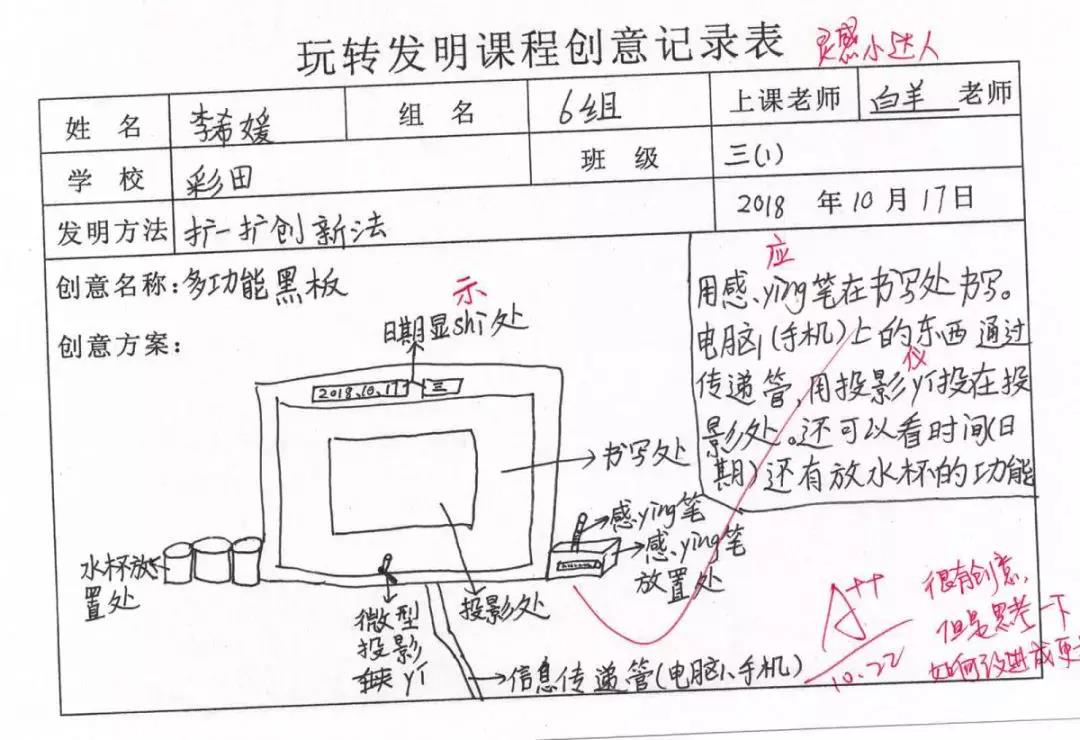 玩转发明课程创意记录表 灵感小达人
姓 名 李希媛 组 名 6组 上课老师 白羊 老师
学 校 彩田 班 级 三(1)
发明方法 扩一扩创新法 2018 年 10 月 17日
创意名称:多功能黑板
创意方案:
示
日期显shi处
2018.10.17 三
书写处
感ying笔
感ying笔
放置处
水杯放
置处
微型
投影
yi
投影处
信息传递管(电脑、手机)
应
用感ying笔在书写处书写。
电脑(手机)上的东西通过
仪
传递管,用投影yi投在投
影处。还可以看时间(日
期)还有放水杯的功能
A++
10.22
很有创意,
但是思考一下
如何改进成更